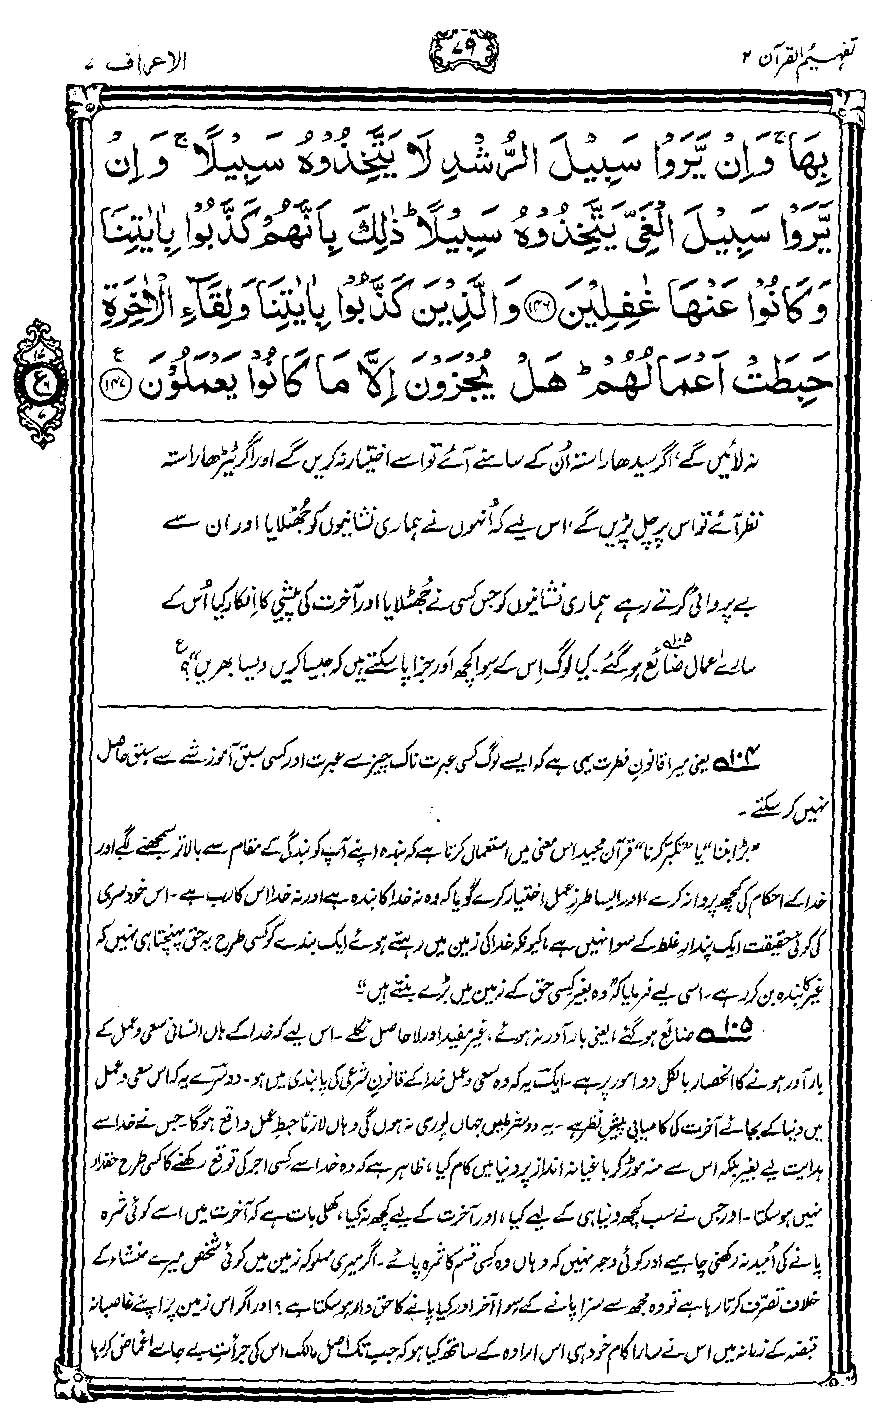 تفہیم القرآن ۲
۷۹
الاعراف ۷
بِهَا ۚ وَاِنْ يَّرَوْا سَبِيْلَ الرُّشْدِ لَا يَتَّخِذُوْهُ سَبِيْلًا ۚ وَاِنْ
يَّرَوْا سَبِيْلَ الْغَيِّ يَتَّخِذُوْهُ سَبِيْلًا ؕ ذٰلِكَ بِاَنَّهُمْ كَذَّبُوْا بِاٰيٰتِنَا
وَكَانُوْا عَنْهَا غٰفِلِيْنَ ﴿۱۴۶﴾ وَالَّذِيْنَ كَذَّبُوْا بِاٰيٰتِنَا وَلِقَآءِ الْاٰخِرَةِ
حَبِطَتْ اَعْمَالُهُمْ ؕ هَلْ يُجْزَوْنَ اِلَّا مَا كَانُوْا يَعْمَلُوْنَ ﴿۱۴۷﴾ ع
۱۷
ع ۹
۷
نہ لائیں گے، اگر سیدھا راستہ اُن کے سامنے آئے تو اسے اختیار نہ کریں گے اور اگر ٹیڑھا راستہ
نظر آئے تو اس پر چل پڑیں گے، اس لیے کہ اُنہوں نے ہماری نشانیوں کو جُھٹلایا اور ان سے
بے پروائی کرتے رہے۔ ہماری نشانیوں کو جس کسی نے جُھٹلایا اور آخرت کی پیشی کا اِنکار کیا اُس کے
سارے اعمال ضائع ہو گئے۱۰۵۔ کیا لوگ اِس کے سوا کچھ اور جزا پا سکتے ہیں کہ جیسا کریں ویسا بھریں"؟ ع
۱۰۴ یعنی میرا قانونِ فطرت یہی ہے کہ ایسے لوگ کسی عبرت ناک چیز سے عبرت اور کسی سبق آموز شے سے سبق حاصل
نہیں کر سکتے۔
"بڑا بننا" یا "تکبر کرنا" قرآن مجید اس معنی میں استعمال کرتا ہے کہ بندہ اپنے آپ کو بندگی کے مقام سے بالاتر سمجھنے لگے اور
خدا کے احکام کی کچھ پروا نہ کرے، اور ایسا طرزِ عمل اختیار کرے گویا کہ وہ نہ خدا کا بندہ ہے اور نہ خدا اس کا رب ہے۔ اس خودسری
کی کوئی حقیقت ایک پندارِ غلط کے سوا نہیں ہے، کیونکہ خدا کی زمین میں رہتے ہوئے ایک بندے کو کسی طرح یہ حق پہنچتا ہی نہیں کہ
غیر بندہ بن کر رہے۔ اسی لیے فرمایا کہ "وہ بغیر کسی حق کے زمین میں بڑے بنتے ہیں"
۱۰۵ ضائع ہو گئے، یعنی بار آور نہ ہوئے، غیر مفید اور لا حاصل نکلے۔ اس لیے کہ خدا کے ہاں انسانی سعی و عمل کے
بار آور ہونے کا انحصار بالکل دو امور پر ہے۔ ایک یہ کہ وہ سعی و عمل خدا کے قانونِ شرعی کی پابندی میں ہو۔ دوسرے یہ کہ اس سعی و عمل
میں دنیا کے بجائے آخرت کی کامیابی پیشِ نظر ہے۔ یہ دو شرطیں جہاں پوری نہ ہوں گی وہاں لازماً حبطِ عمل واقع ہوگا۔ جس نے خدا سے
ہدایت لیے بغیر بلکہ اس سے منہ موڑ کر باغیانہ انداز پر دنیا میں کام کیا، ظاہر ہے کہ وہ خدا سے کسی اجر کی توقع رکھنے کا کسی طرح حقدار
نہیں ہو سکتا۔ اور جس نے سب کچھ دنیا ہی کے لیے کیا، اور آخرت کے لیے کچھ نہ کیا، کھلی بات ہے کہ آخرت میں اسے کوئی ثمرہ
پانے کی اُمید نہ رکھنی چاہیے اور کوئی وجہ نہیں کہ وہاں وہ کسی قسم کا ثمرہ پائے۔ اگر میری مملوکہ زمین میں کوئی شخص میرے منشاء کے
خلاف تصرف کرتا رہا ہے تو وہ مجھ سے سزا پانے کے سوا آخر اور کیا پانے کا حق دار ہو سکتا ہے؟ اور اگر اس زمین پر اپنے غاصبانہ
قبضہ کے زمانہ میں اس نے سارا کام خود ہی اس ارادہ کے ساتھ کیا ہو کہ جب تک اصل مالک اس کی جرأتِ بے جا سے اغماض کر رہا